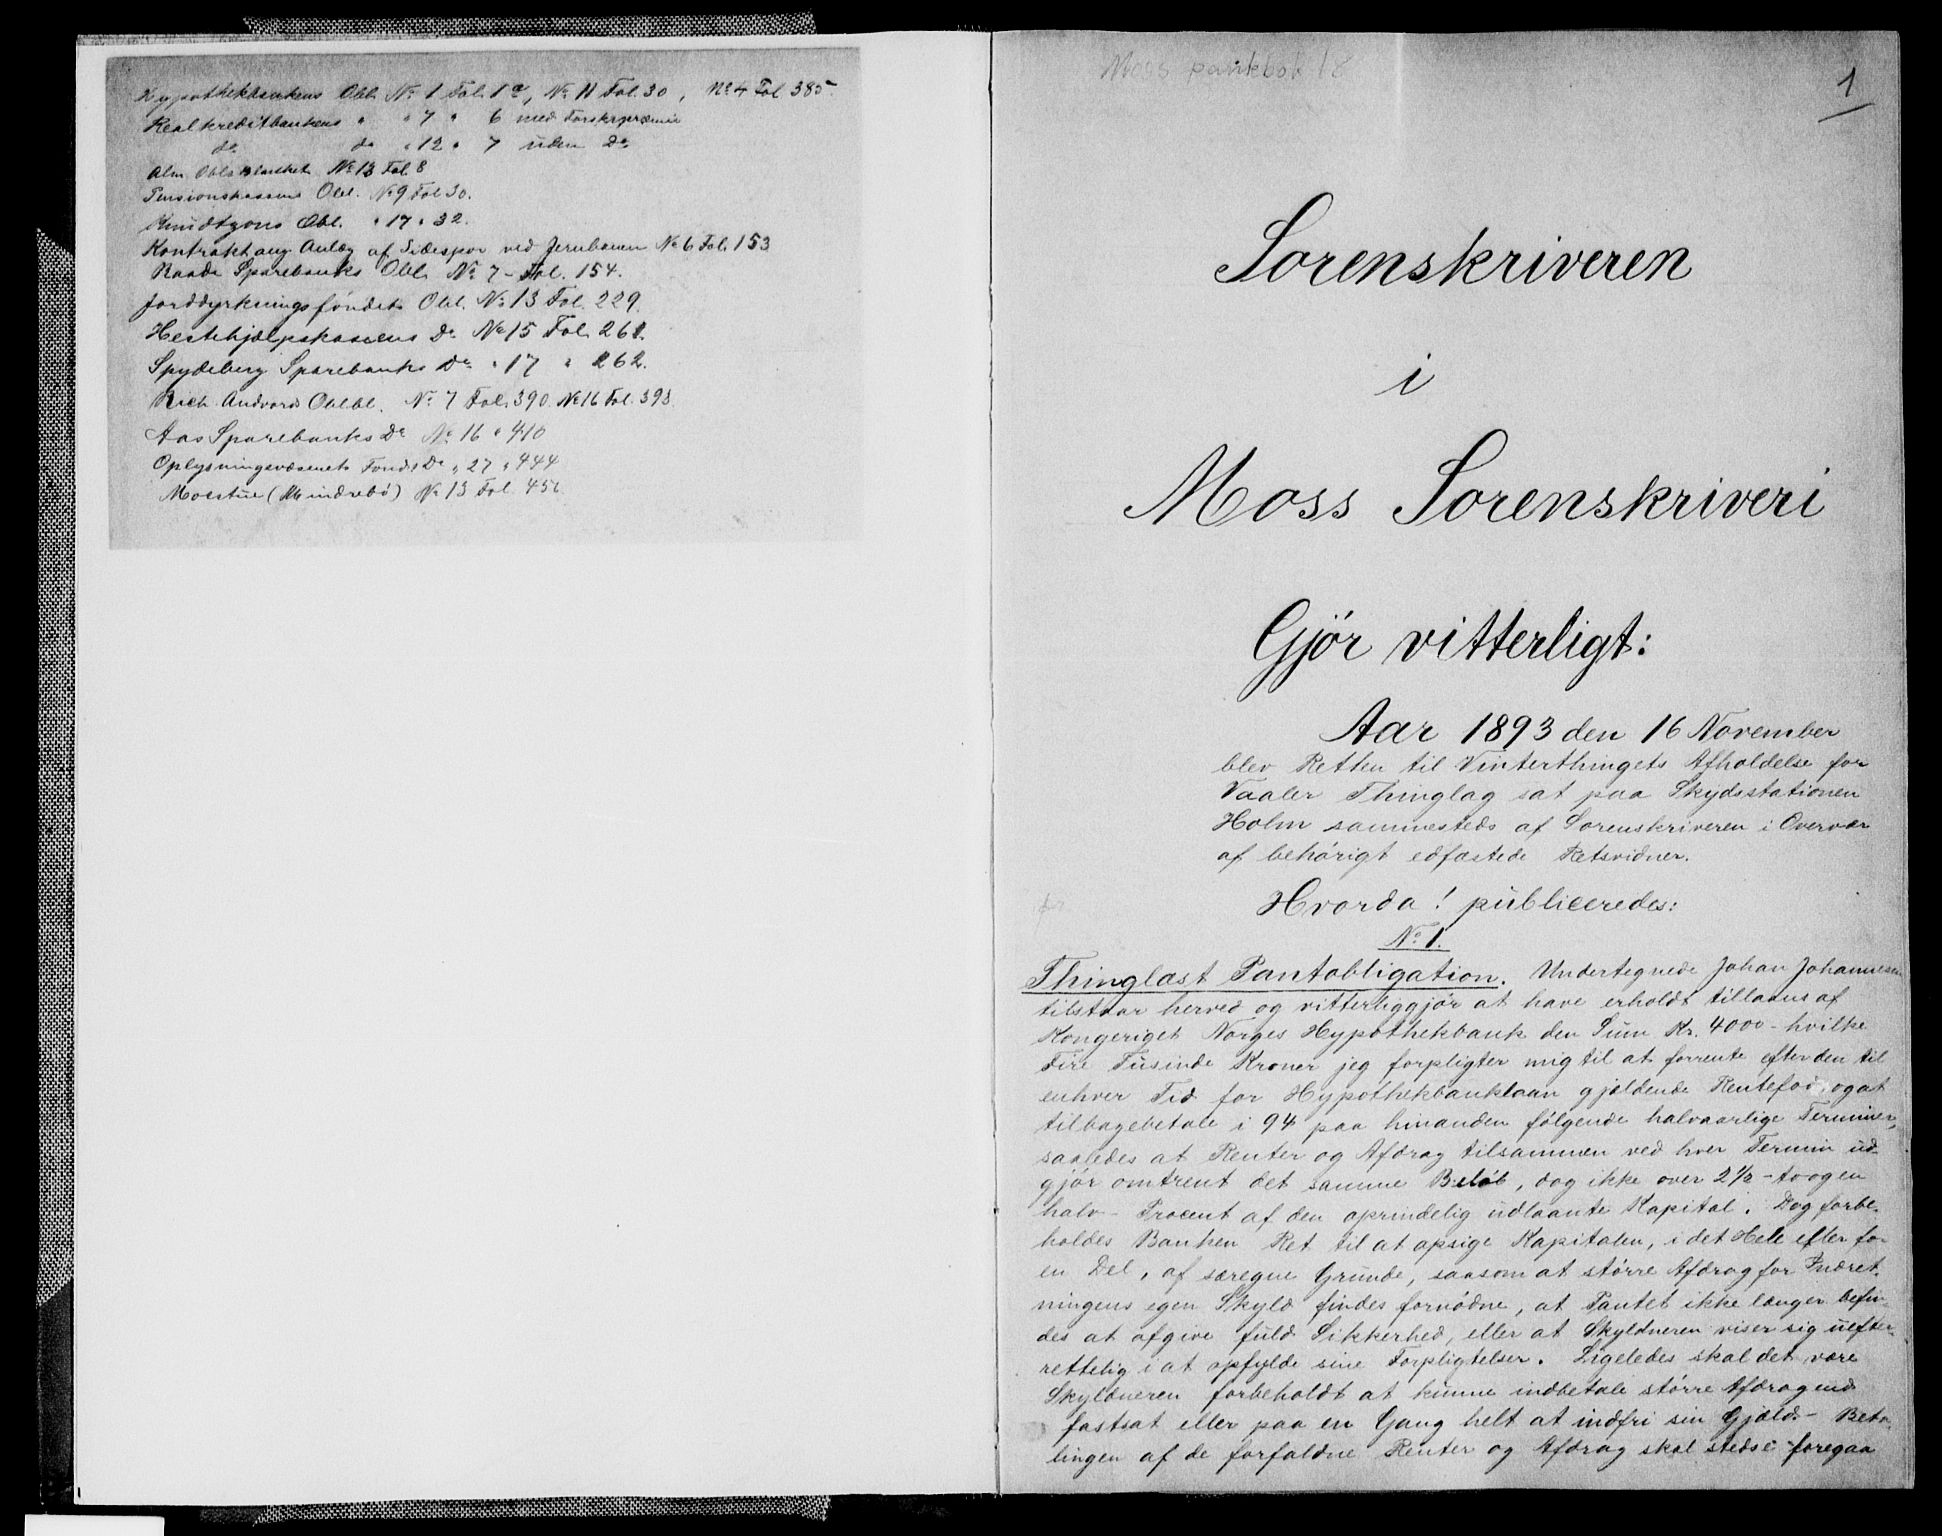 Hypothekbankens Obl. No 1 Fol. 1a, No 11 Fol. 30, No 4 Fol 385.
Realkreditbankens " " 7 " 6 med Forskrpræmie
do do " 12 " 7 uden Do
Alm. Obls Blanket No 13 Fol. 8
Pensionskassens Obl. No 9 Fol 30.
Knudtzons Obl. " 17 " 32.
Kontrakt ang. Anlæg af Sidespor ved Jernbanen No 6 Fol. 153
Raade Sparebanks Obl. No 7 - Fol. 154.
Jorddyrkningsfondets Obl. No 13 Fol. 229.
Hestehjælpskassens Do No 15 Fol. 261.
Spydeberg Sparebanks Do " 17 " 262.
Rich. Andvords Oblbl. No 7 Fol. 390. No 16 Fol. 393.
Aas Sparebanks Do No 16 " 410
Oplysningsvæsenets Fonds Do " 27 " 444
Moestue (Mindrebö) No 13 Fol. 456
Moss pantebok 18
1
Sorenskriveren
i
Moss Sorenskriveri
Gjör vitterligt:
Aar 1893 den 16 November
blev Retten til Vinterthingets Afholdelse for
Vaaler Thinglag sat paa Skydsstationen
Holm sammesteds af Sorenskriveren i Overvær
af behörigt edfæstede Retsvidner.
Hvorda! publiceredes:
No 1.
Thinglæst Pantobligation. Undertegnede Johan Johannesen
tilstaar herved og vitterliggjör at have erholdt tillaans af
Kongeriget Norges Hypothekbank den Sum Kr. 4000 - hvilke
Fire Tusinde Kroner jeg forpligter mig til at forrente efter den til
enhver Tid for Hypothekbanklaan gjældende Rentefod, og at
tilbagebetale i 94 paa hinanden fölgende halvaarlige Terminer,
saaledes at Renter og Afdrag tilsammen ved hver Termin ud-
gjör omtrent det samme Belöb, dog ikke over 2 1/2 - to og en
halv - Procent af den oprindelig udlaante Kapital. Dog forbe-
holdes Banken Ret til at opsige Kapitalen, i det Hele eller for
en Del, af særegne Grunde, saasom at större Afdrag for Indret-
ningens egen Skyld findes fornödne, at Pantet ikke længer befin-
des at afgive fuld Sikkerhed, eller at Skyldneren viser sig uefter-
rettelig i at opfylde sine Forpligtelser. Ligeledes skal det være
Skyldneren forbeholdt at kunne indbetale större Afdrag end
fastsat eller paa en Gang helt at indfri sin Gjæld. - Beta-
lingen af de forfaldne Renter og Afdrag skal stedse foregaa